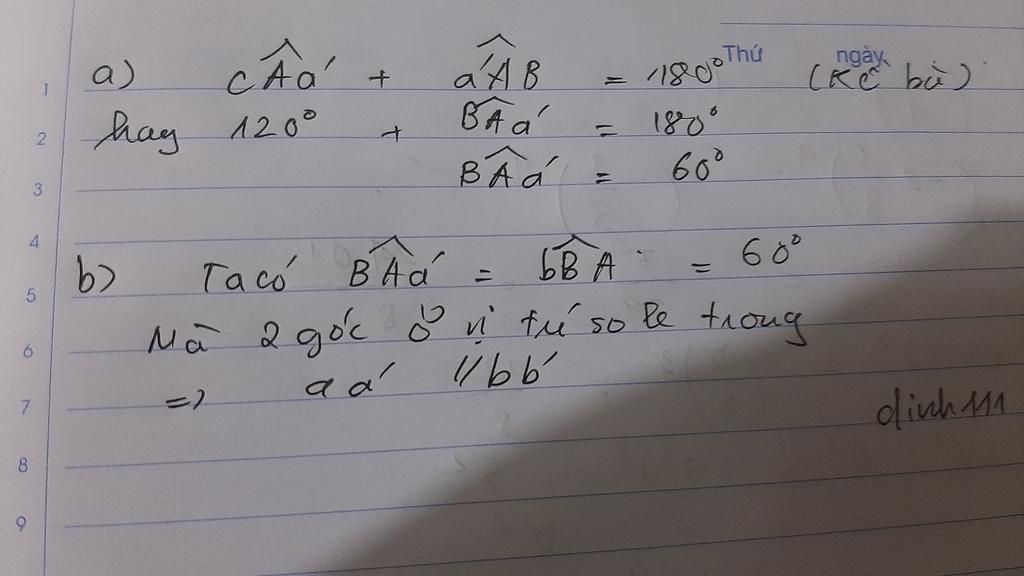 Thứ ngày
1 a) cÂa' + a'ÂB = 180° (Kề bù)
2 hay 120° + BÂa' = 180°
3 BÂa' = 60°
4
5 b) Ta có BÂa' = bB̂A = 60°
6 Mà 2 góc ở vị trí so le trong
7 => aa' // bb'
dinh111
8
9